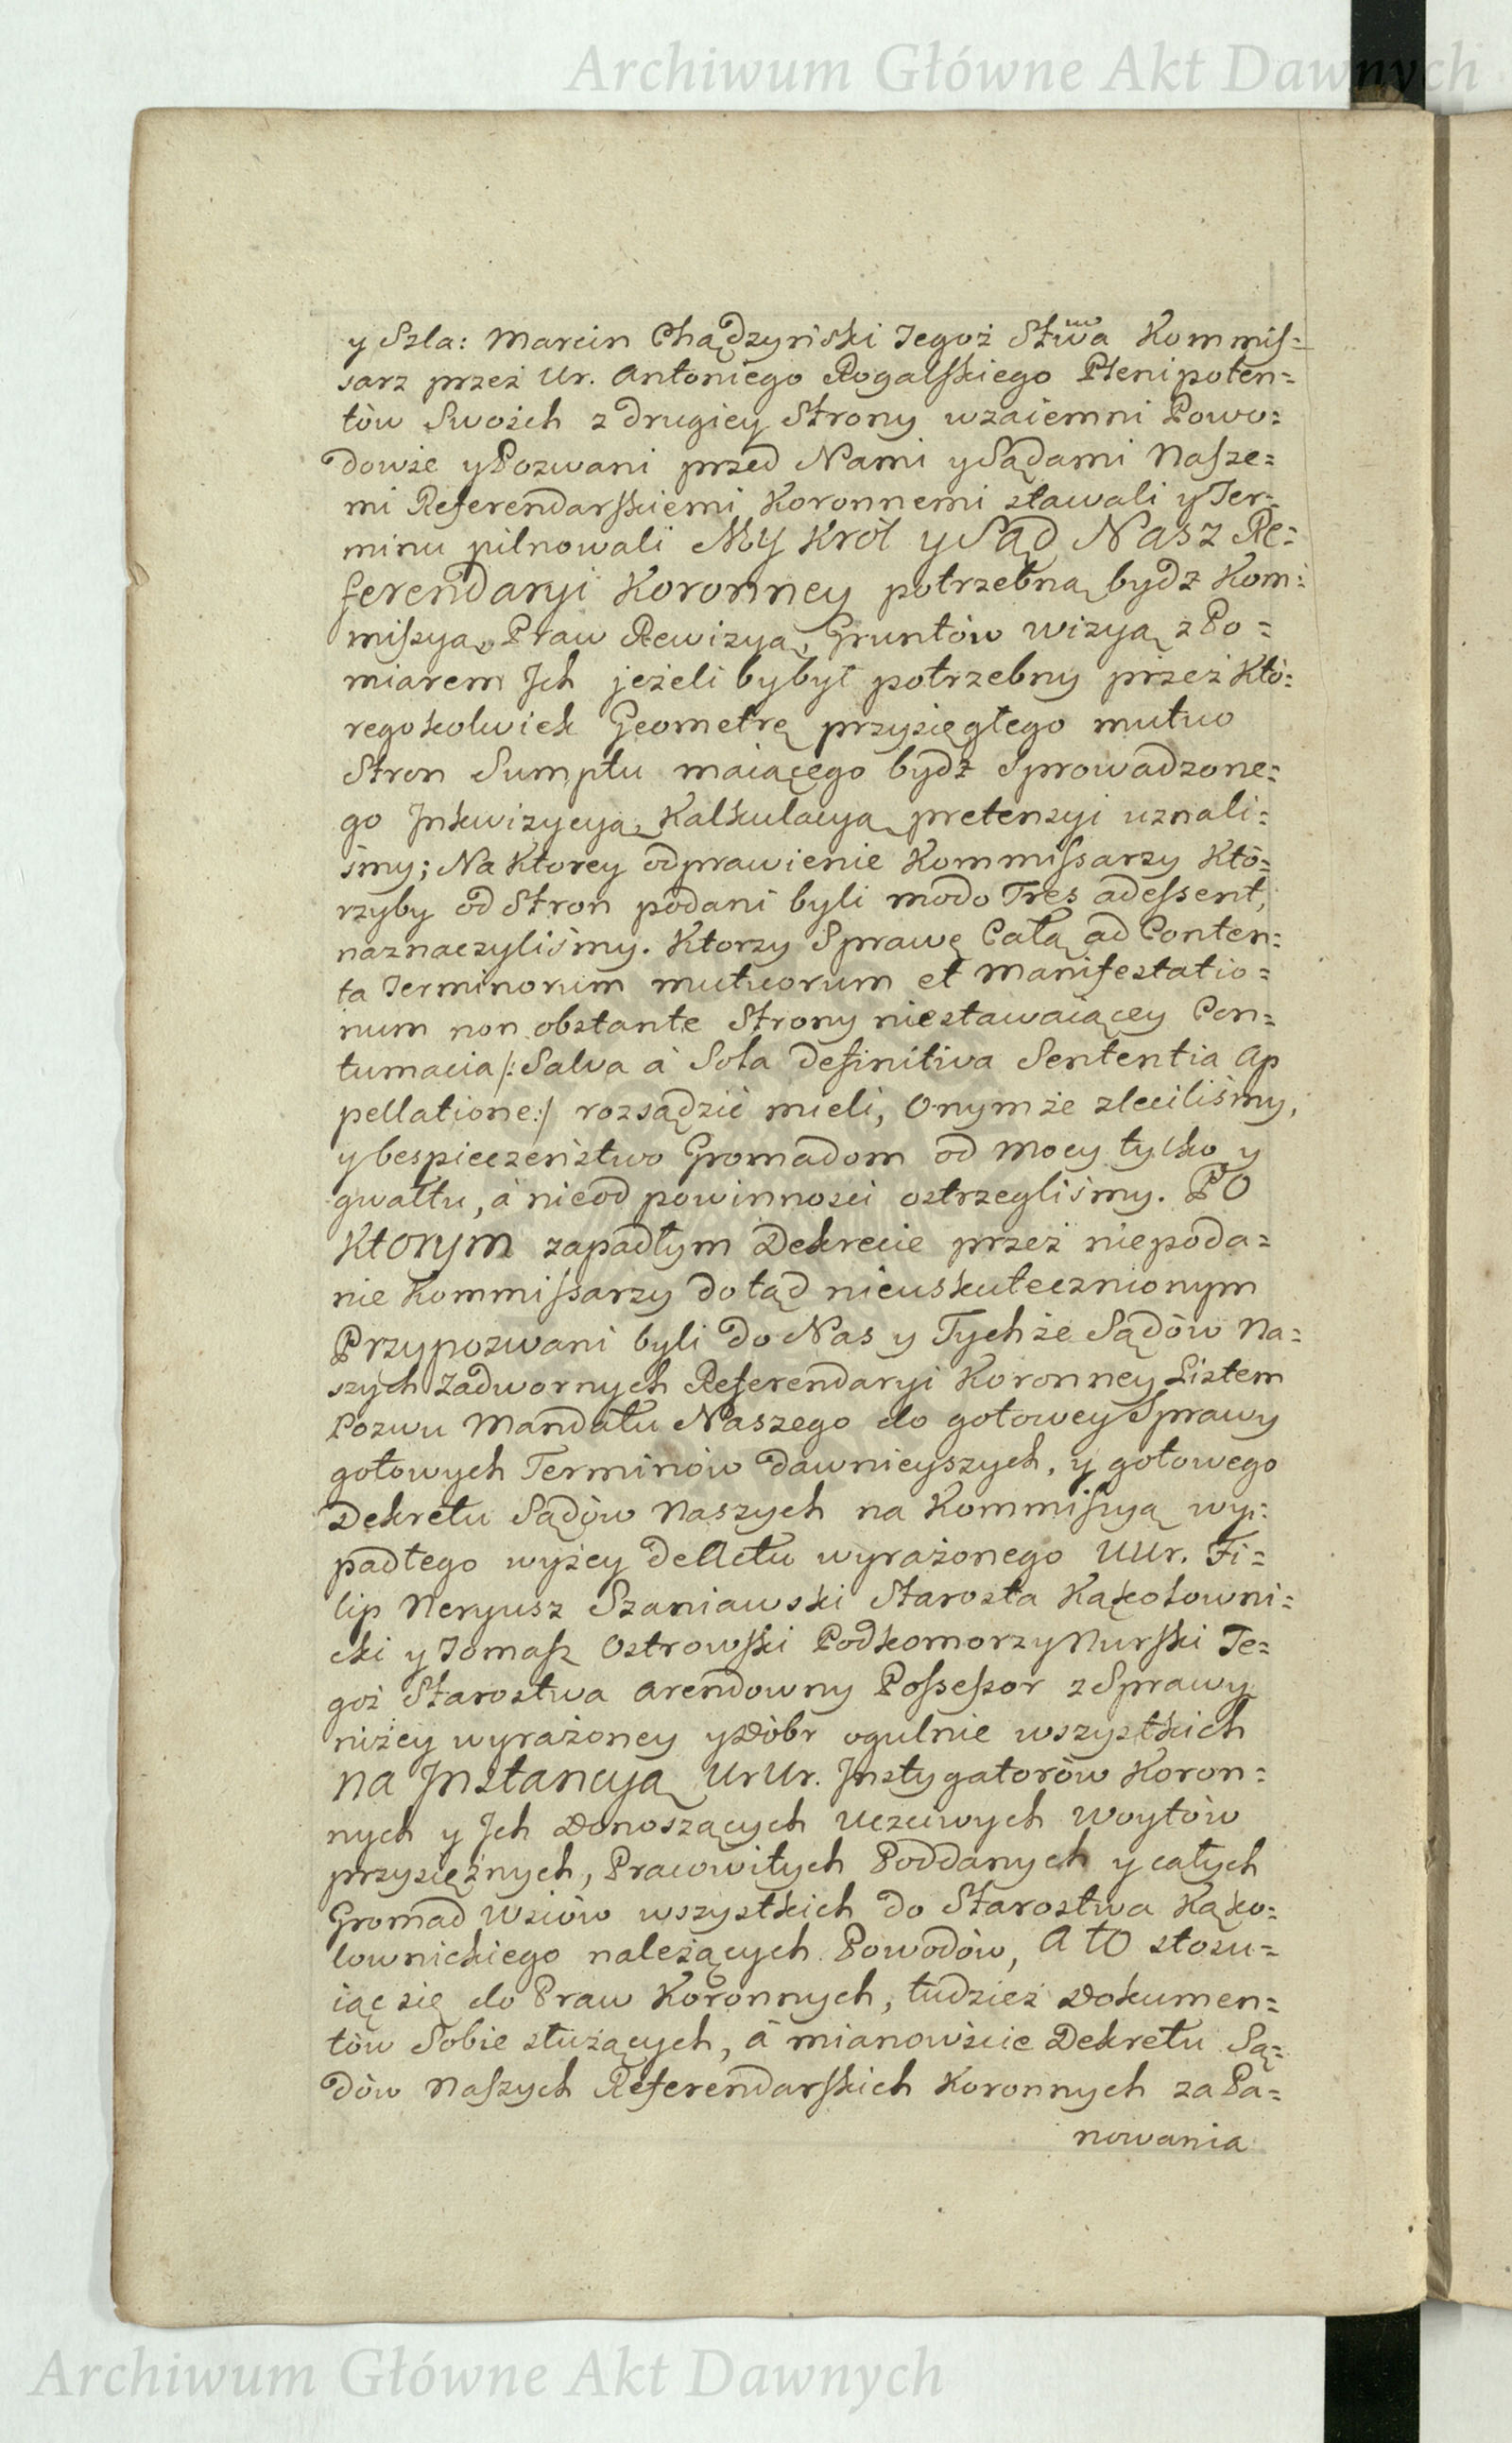 Archiwum Główne Akt Dawnych
y Szla: Marcin Chądzyński Jegoż Stwa Kommis=
sarz przez Ur. Antoniego Rogalskiego Plenipoten=
tów Swoich z drugiey Strony wzaiemni Powo=
dowie y Pozwani przed Nami y Sądami Nasze=
mi Referendarskiemi Koronnemi stawali y Ter=
minu pilnowali My Krol y Sąd Nasz Re=
ferendaryi Koronney potrzebną bydz Kom=
missyą, Praw Rewizyą, Gruntów wizyą z Po=
miarem Jch jeżeli byby potrzebny przez Któ=
regokolwiek Geometrę przysięgłego mutuo
Stron Sumptu maiącego bydź Sprowadzone=
go Jnkwizycyą, Kalkulacyą pretensyi uznali=
śmy; Na Ktorey odprawienie Kommissarzy Któ=
rzyby od Stron podani byli modo Tres adessent,
naznaczyliśmy. Ktorzy Sprawę Całą ad Conten=
ta Terminorum mutuorum et Manifestatio=
num non obstante Strony niestawaiącey Con=
tumacia /: Salva à Sola definitiva Sententia Ap
pellatione:/ rozsądzić mieli, Onymże zleciliśmy,
y bespieczeństwo Gromadom od Mocy tylko y
gwałtu, à nieod powinnosci ostrzegliśmy. PO
Ktorym zapadłym Dekrecie przez niepoda=
nie Kommissarzy dotąd nieuskutecznionym
Przypozwani byli do Nas y Tychże Sądów Na=
szych Zadwornych Referendaryi Koronney Listem
Pozwu Mandatu Naszego do gotowey Sprawy
gotowych Terminów dawnieyszych, y gotowego
Dekretu Sądów Naszych na Kommissyą wy=
padłego wyżey de Actu wyrażonego UUr. Fi=
lip Neryusz Szaniawski Starosta Kąkolowni=
cki y Tomasz Ostrowski Podkomorzy Nurski Te=
goż Starostwa Arendowny Possessor z Sprawy
niżey wyrażoney y Dóbr ogulnie wszystkich
na Jnstancyą UrUr. Jnstygatorów Koron=
nych y Jch Donoszących Uczciwych Woytów
przysiężnych, Pracowitych Poddanych y całych
Gromad Wsiów wszystkich do Starostwa Kąko=
lownickiego należących Powodów, A to stosu=
iąc się do Praw Koronnych, tudzież Dokumen=
tów Sobie służących, à mianowicie Dekretu Są=
dów Naszych Referendarskich Koronnych za Pa=
nowania
Archiwum Główne Akt Dawnych